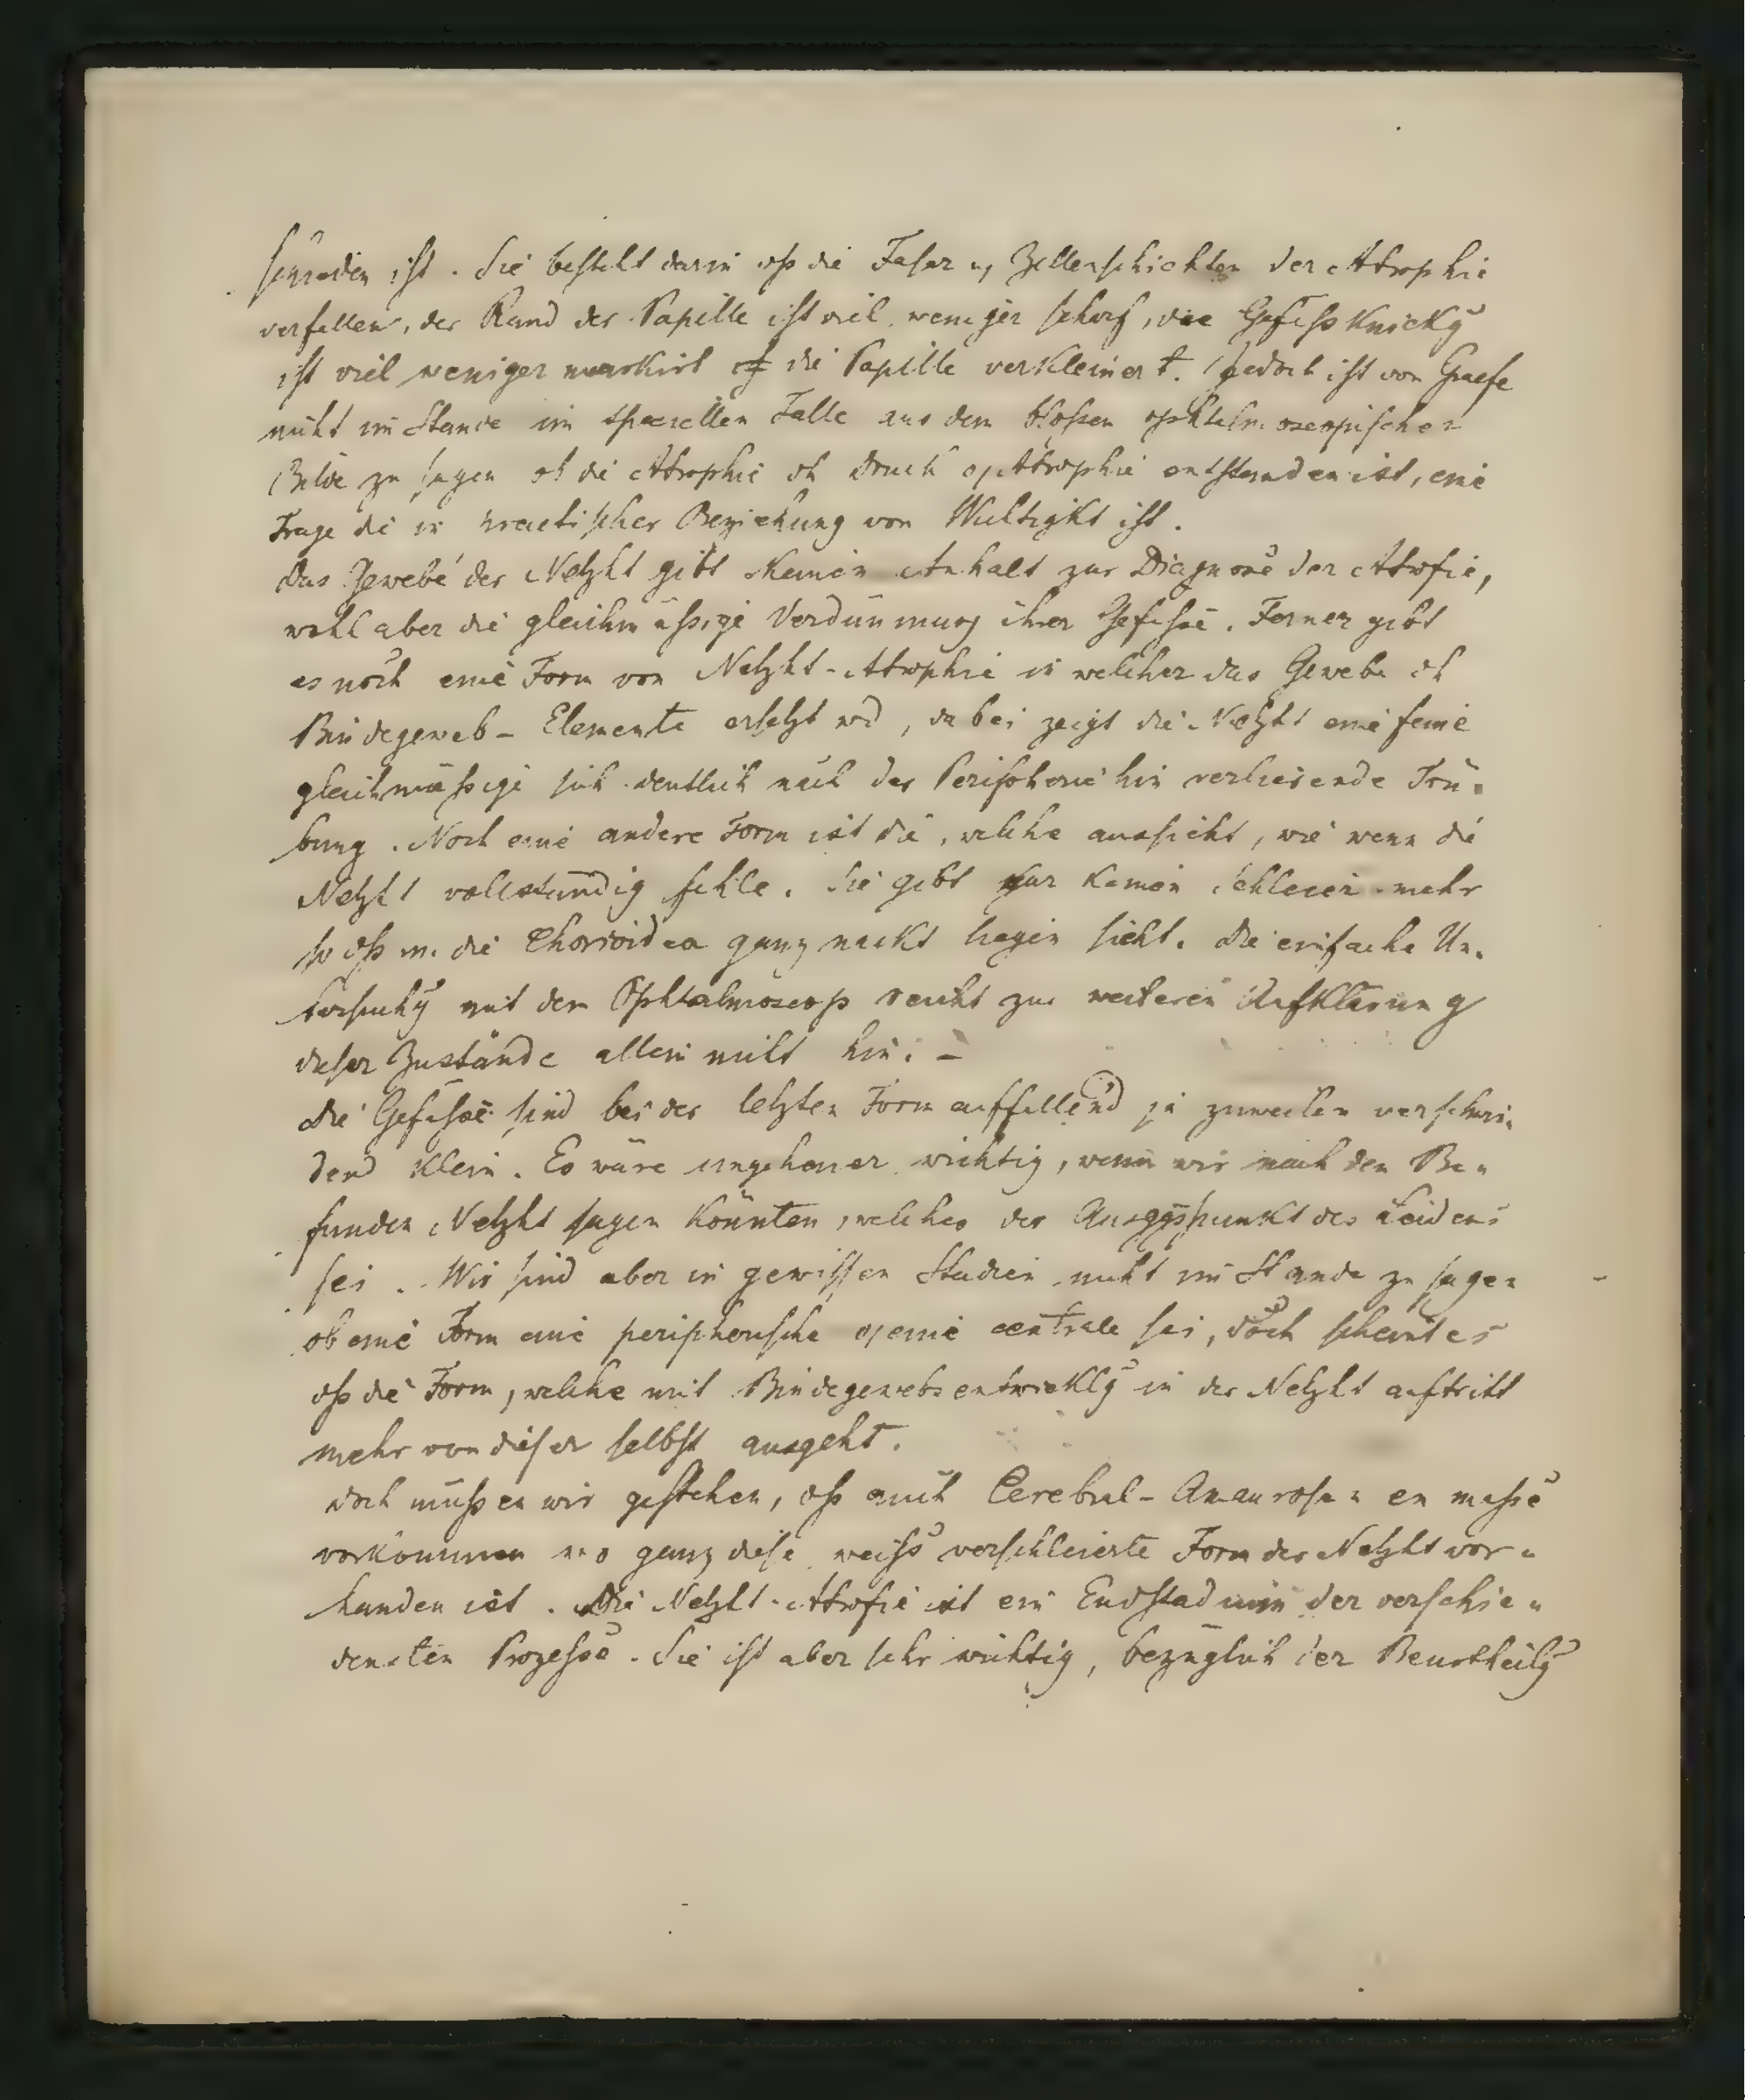 ist. Sie besteht darin dß die Faser u Zellenschichten der Atrophie
verfallen, der Rand der Papille ist viel weniger scharf, die Gefäßknickg
ist viel weniger markirt die Papille verkleinert. Jedoch ist von Graefe
nicht im Stande im speciellen Falle aus dem bloßen ophtalmoscopischen
Bilde zu sagen ob die Atrophie dch Druck od Atrophie entstanden ist, eine
Frage die in practischer Beziehung von Wichtigkt ist.
Das Gewebe der Netzht gibt keinen Anhalt zur Diagnose der Atrofie,
wohl aber die gleichmäßige Verdünnung ihrer Gefässe. Ferner gibt
es noch eine Form von Netzht-Atrophie in welcher das Gewebe dch
Bindegeweb-Elemente ersetzt wd, dabei zeigt die Netzht eine feine
gleichmäßige sich deutlich nach der Peripherie hin verlierende Trü-
bung. Noch eine andere Form ist die, welche aussieht, wie wenn die
Netzht vollständig fehle. Sie gibt gar keinen Schleier mehr
so dß m. die Chorioidea ganz nackt liegen sieht. Die einfache Un-
tersuchg mit dem Ophtalmoscop reicht zur weiteren Aufklärung
dieser Zustände allein nicht hin. -
Die Gefässe sind bei der letzten Form auffallend ja zuweilen verschwin-
dend klein. Es wäre ungeheuer wichtig, wenn wir nach den Be-
funden Netzht sagen könnten, welches der Ausggspunkt des Leidens
sei. Wir sind aber in gewissen Stadien nicht im Stande zu sagen
ob eine Form eine peripherische od eine centrale sei, doch scheint es
dß die Form, welche mit Bindegewebsentwicklg in der Netzht auftritt
mehr von dieser selbst ausgeht.
Doch müßen wir gestehen, dß auch Cerebral-Amaurosen en masse
vorkommen wo ganz diese weiss verschleierte Form der Netzht vor-
handen ist. Die Netzht-Atrofie ist ein Endstadium der verschie-
densten Prozesse. Sie ist aber sehr wichtig, bezüglich der Beurtheilg